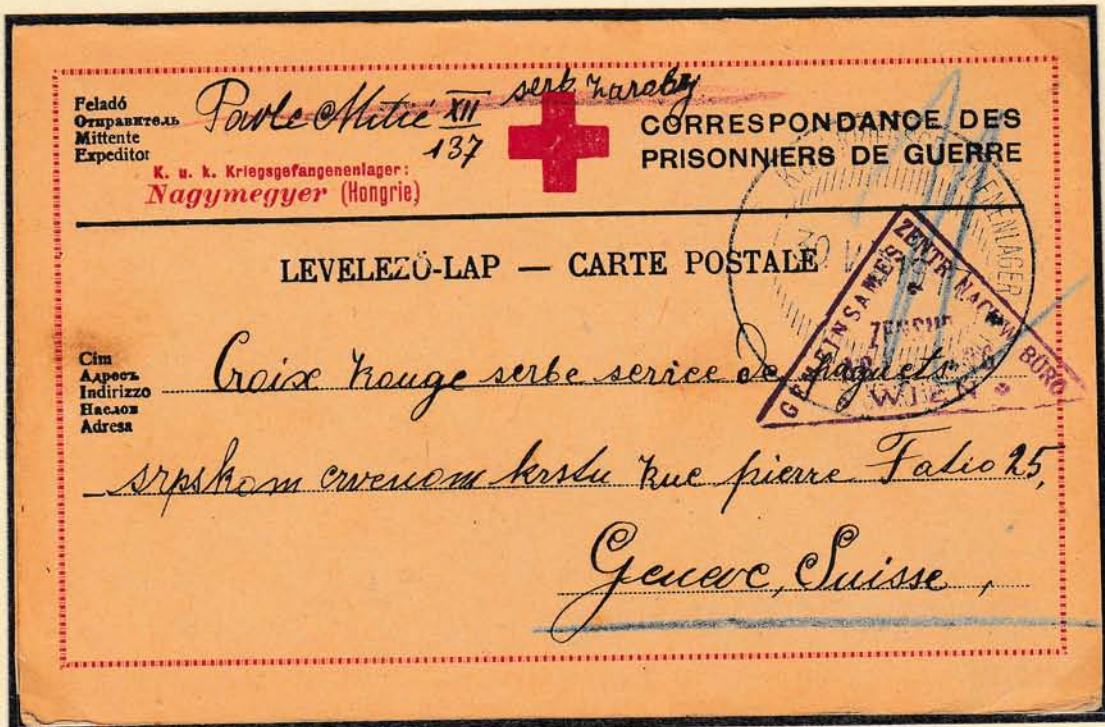 Feladó
Отправитель
Mittente
Expeditor
Pavle Mitić XII
137
serb
K. u. k. Kriegsgefangenenlager:
Nagymegyer (Hongrie)
CORRESPONDANCE DES
PRISONNIERS DE GUERRE
LEVELEZŐ-LAP — CARTE POSTALE
GEMEINSAMES ZENTR. NACHW. BÜRO
ZENSUR
WIEN
Cím
Адресъ
Indirizzo
Наслов
Adresa
Croix Rouge serbe service de paquets
srpskom crvenom krstu Rue pierre Fatio 25,
Geneve, Suisse,